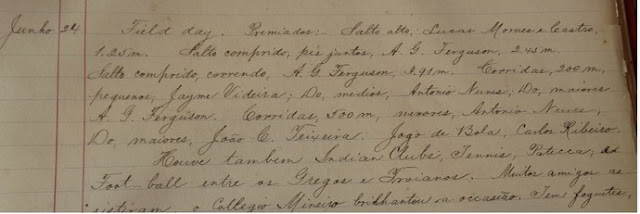 Junho 24 Field day. Premiados:- Salto alto, Lucas Moraes e Castro,
1.25 m. Salto comprido, pés juntos, A. G. Ferguson, 2.45 m.
Salto comprido, correndo, A. G. Ferguson, 3.91 m. Corridas, 200 m,
pequenos, Jayme Videira; Do, medios, Antonio Nunes; Do, maiores
A. G. Ferguson. Corridas, 500 m, menores, Antonio Nunes,
Do, maiores, João C. Teixeira. Jogo de Bola, Carlos Ribeiro.
Houve tambem Indian Clubs, Tennis, Petecca,
Foot ball entre os Gregos e Troianos. Muitos amigos as
sistiram, o Collegio Mineiro occasião. Teve foguetes,